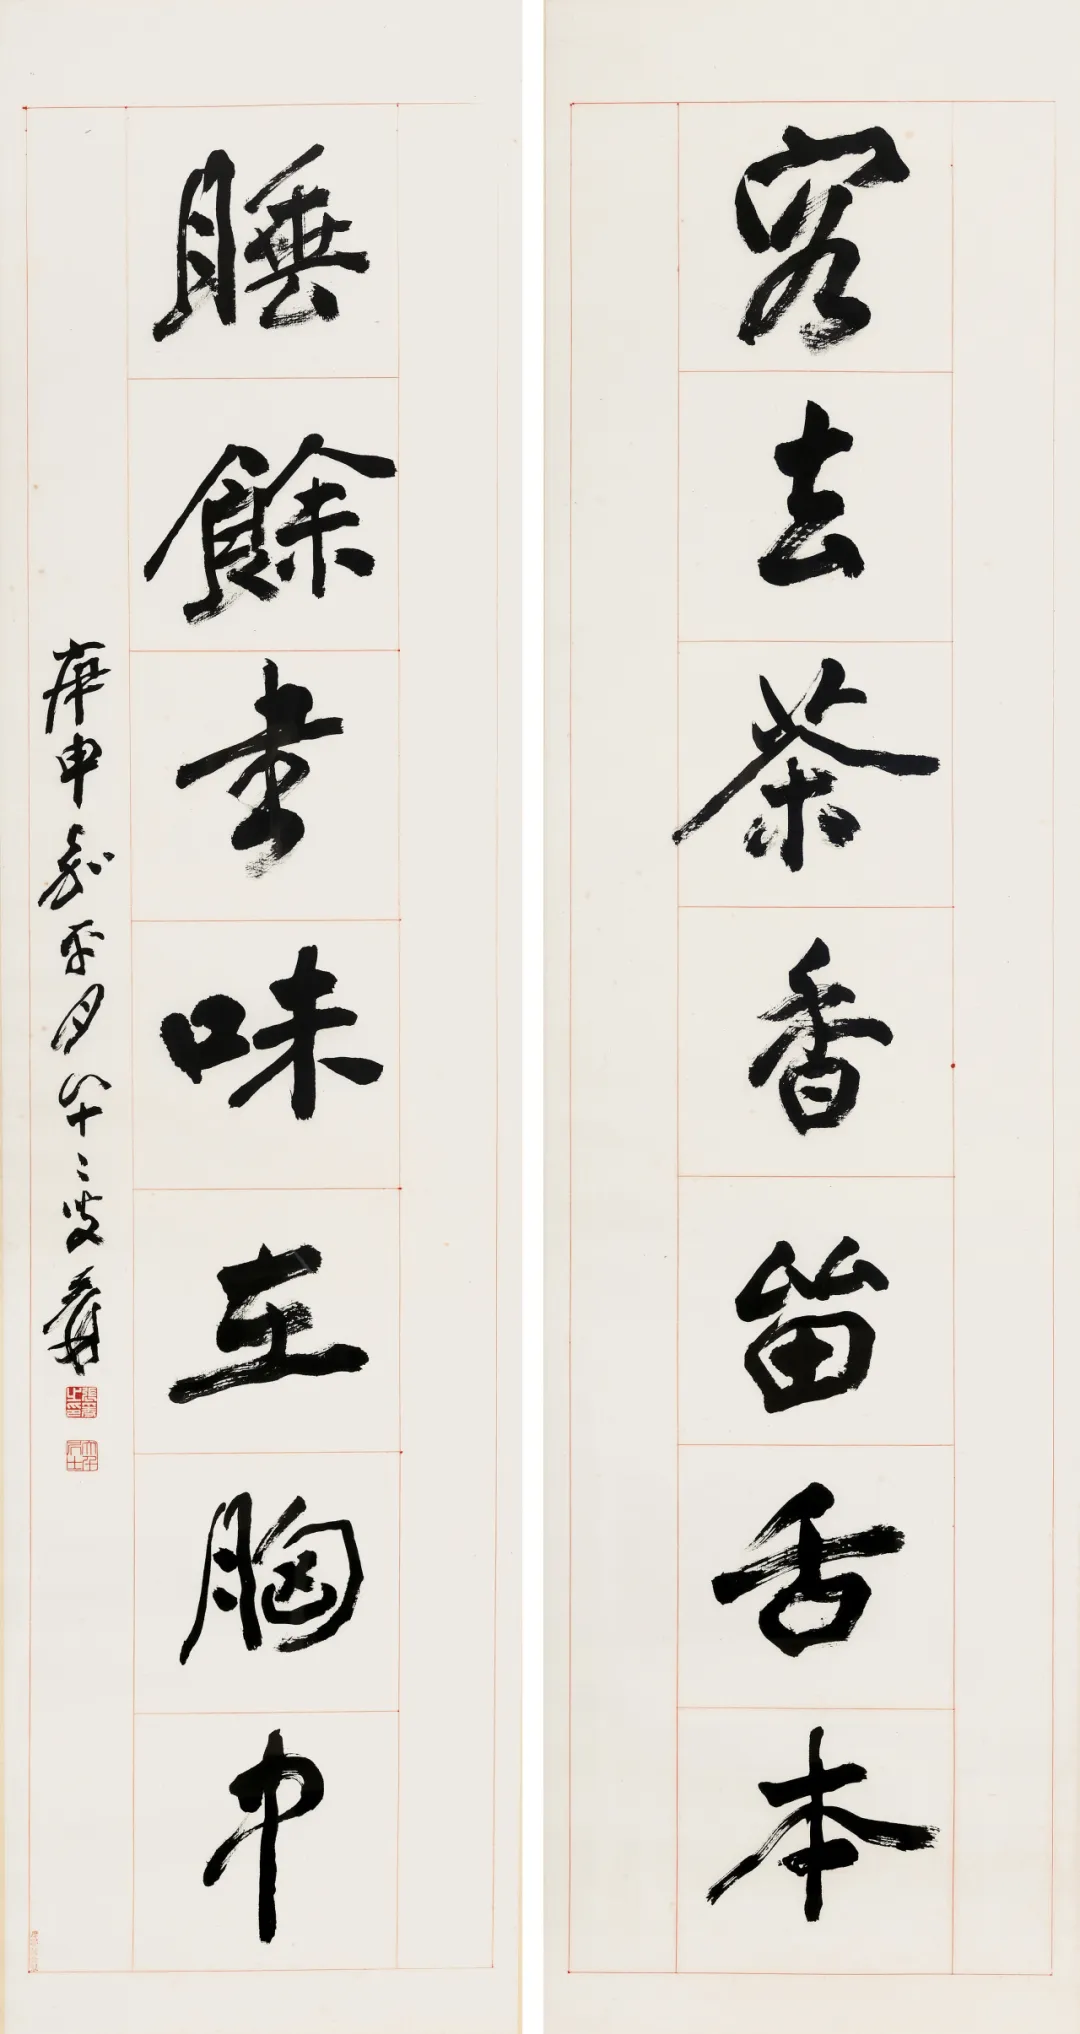 客去茶香留舌本
睡餘書味在胸中
庚申嘉平月八十二叟爰
張爰之印
大千居士